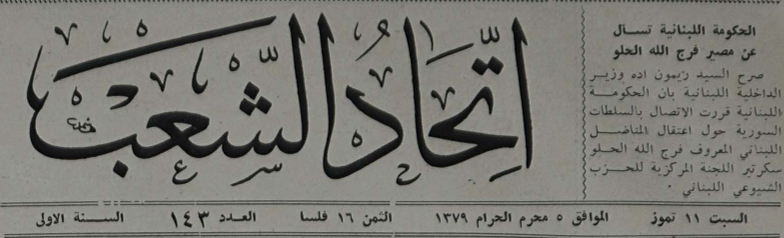 اتحاد الشعب
الحكومة اللبنانية تسال
عن مصير فرج الله الحلو
صرح السيد ريمون اده وزير
الداخلية اللبنانية بان الحكومة
اللبنانية قررت الاتصال بالسلطات
السورية حول اعتقال المناضل
اللبناني المعروف فرج الله الحلو
سكرتير اللجنة المركزية للحزب
الشيوعي اللبناني ·
السبت ١١ تموز الموافق ٥ محرم الحرام ١٣٧٩ الثمن ١٦ فلسا العدد ١٤٣ السنة الاولى